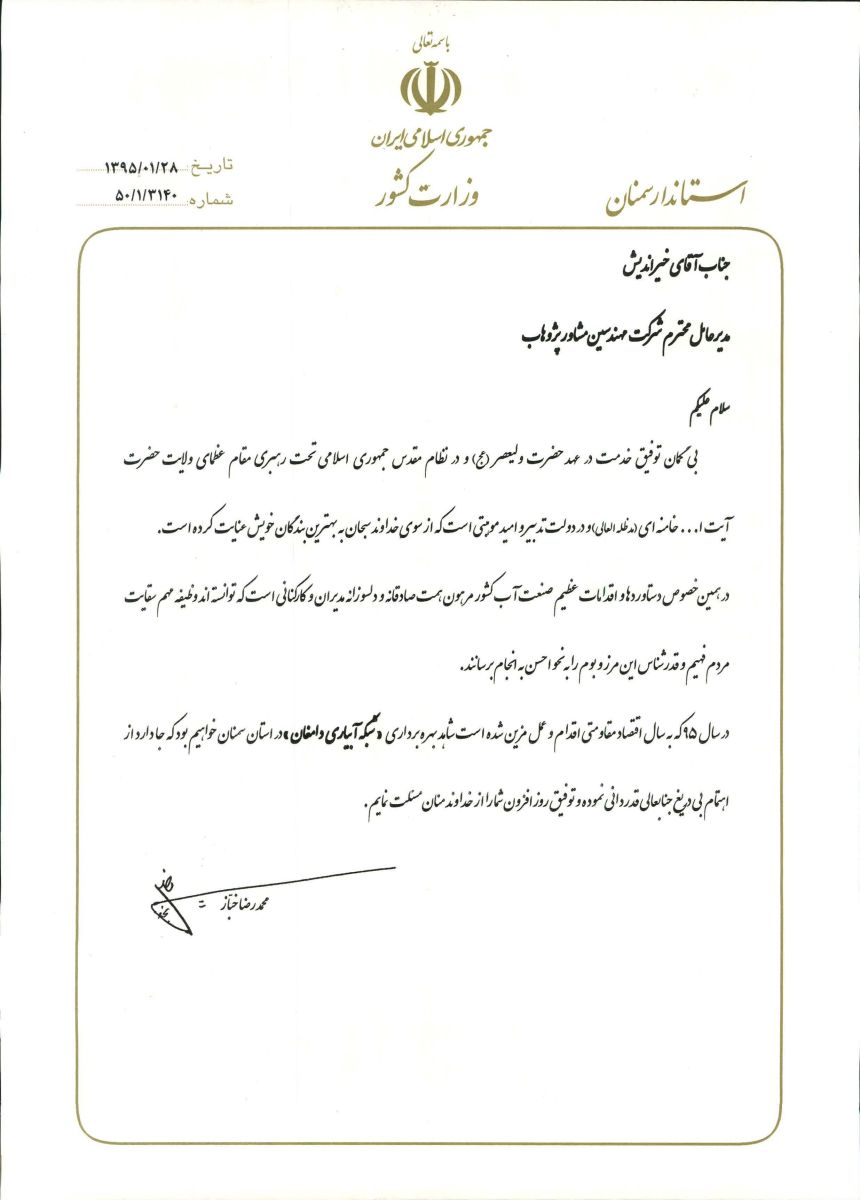 باسمه تعالی
جمهوری اسلامی ایران
وزارت کشور
استاندار سمنان
تاریخ: ۱۳۹۵/۰۱/۲۸
شماره: ۵۰/۱/۳۱۴۰
جناب آقای خیراندیش
مدیرعامل محترم شرکت مهندسین مشاور پژوهاب
سلام علیکم
بی گمان توفیق خدمت در عهد حضرت ولیعصر (عج) و در نظام مقدس جمهوری اسلامی تحت رهبری مقام عظمای ولایت حضرت
آیت ا... خامنه ای (مدظله العالی) و در دولت تدبیر و امید موهبتی است که از سوی خداوند سبحان به بهترین بندگان خویش عنایت کرده است.
در همین خصوص دستاوردها و اقدامات عظیم صنعت آب کشور مرهون همت صادقانه و دلسوزانه مدیران و کارکنانی است که توانسته اند وظیفه مهم سقایت
مردم فهیم و قدرشناس این مرز و بوم را به نحو احسن به انجام برسانند.
در سال ۹۵ که به سال اقتصاد مقاومتی اقدام و عمل مزین شده است شاهد بهره برداری «شبکه آبیاری دامغان» در استان سمنان خواهیم بود که جا دارد از
اهتمام بی دریغ جنابعالی قدردانی نموده و توفیق روز افزون شما را از خداوند منان مسئلت نمایم.
محمدرضا خبّاز